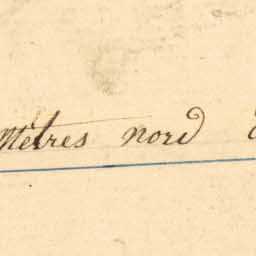 Mètres nord